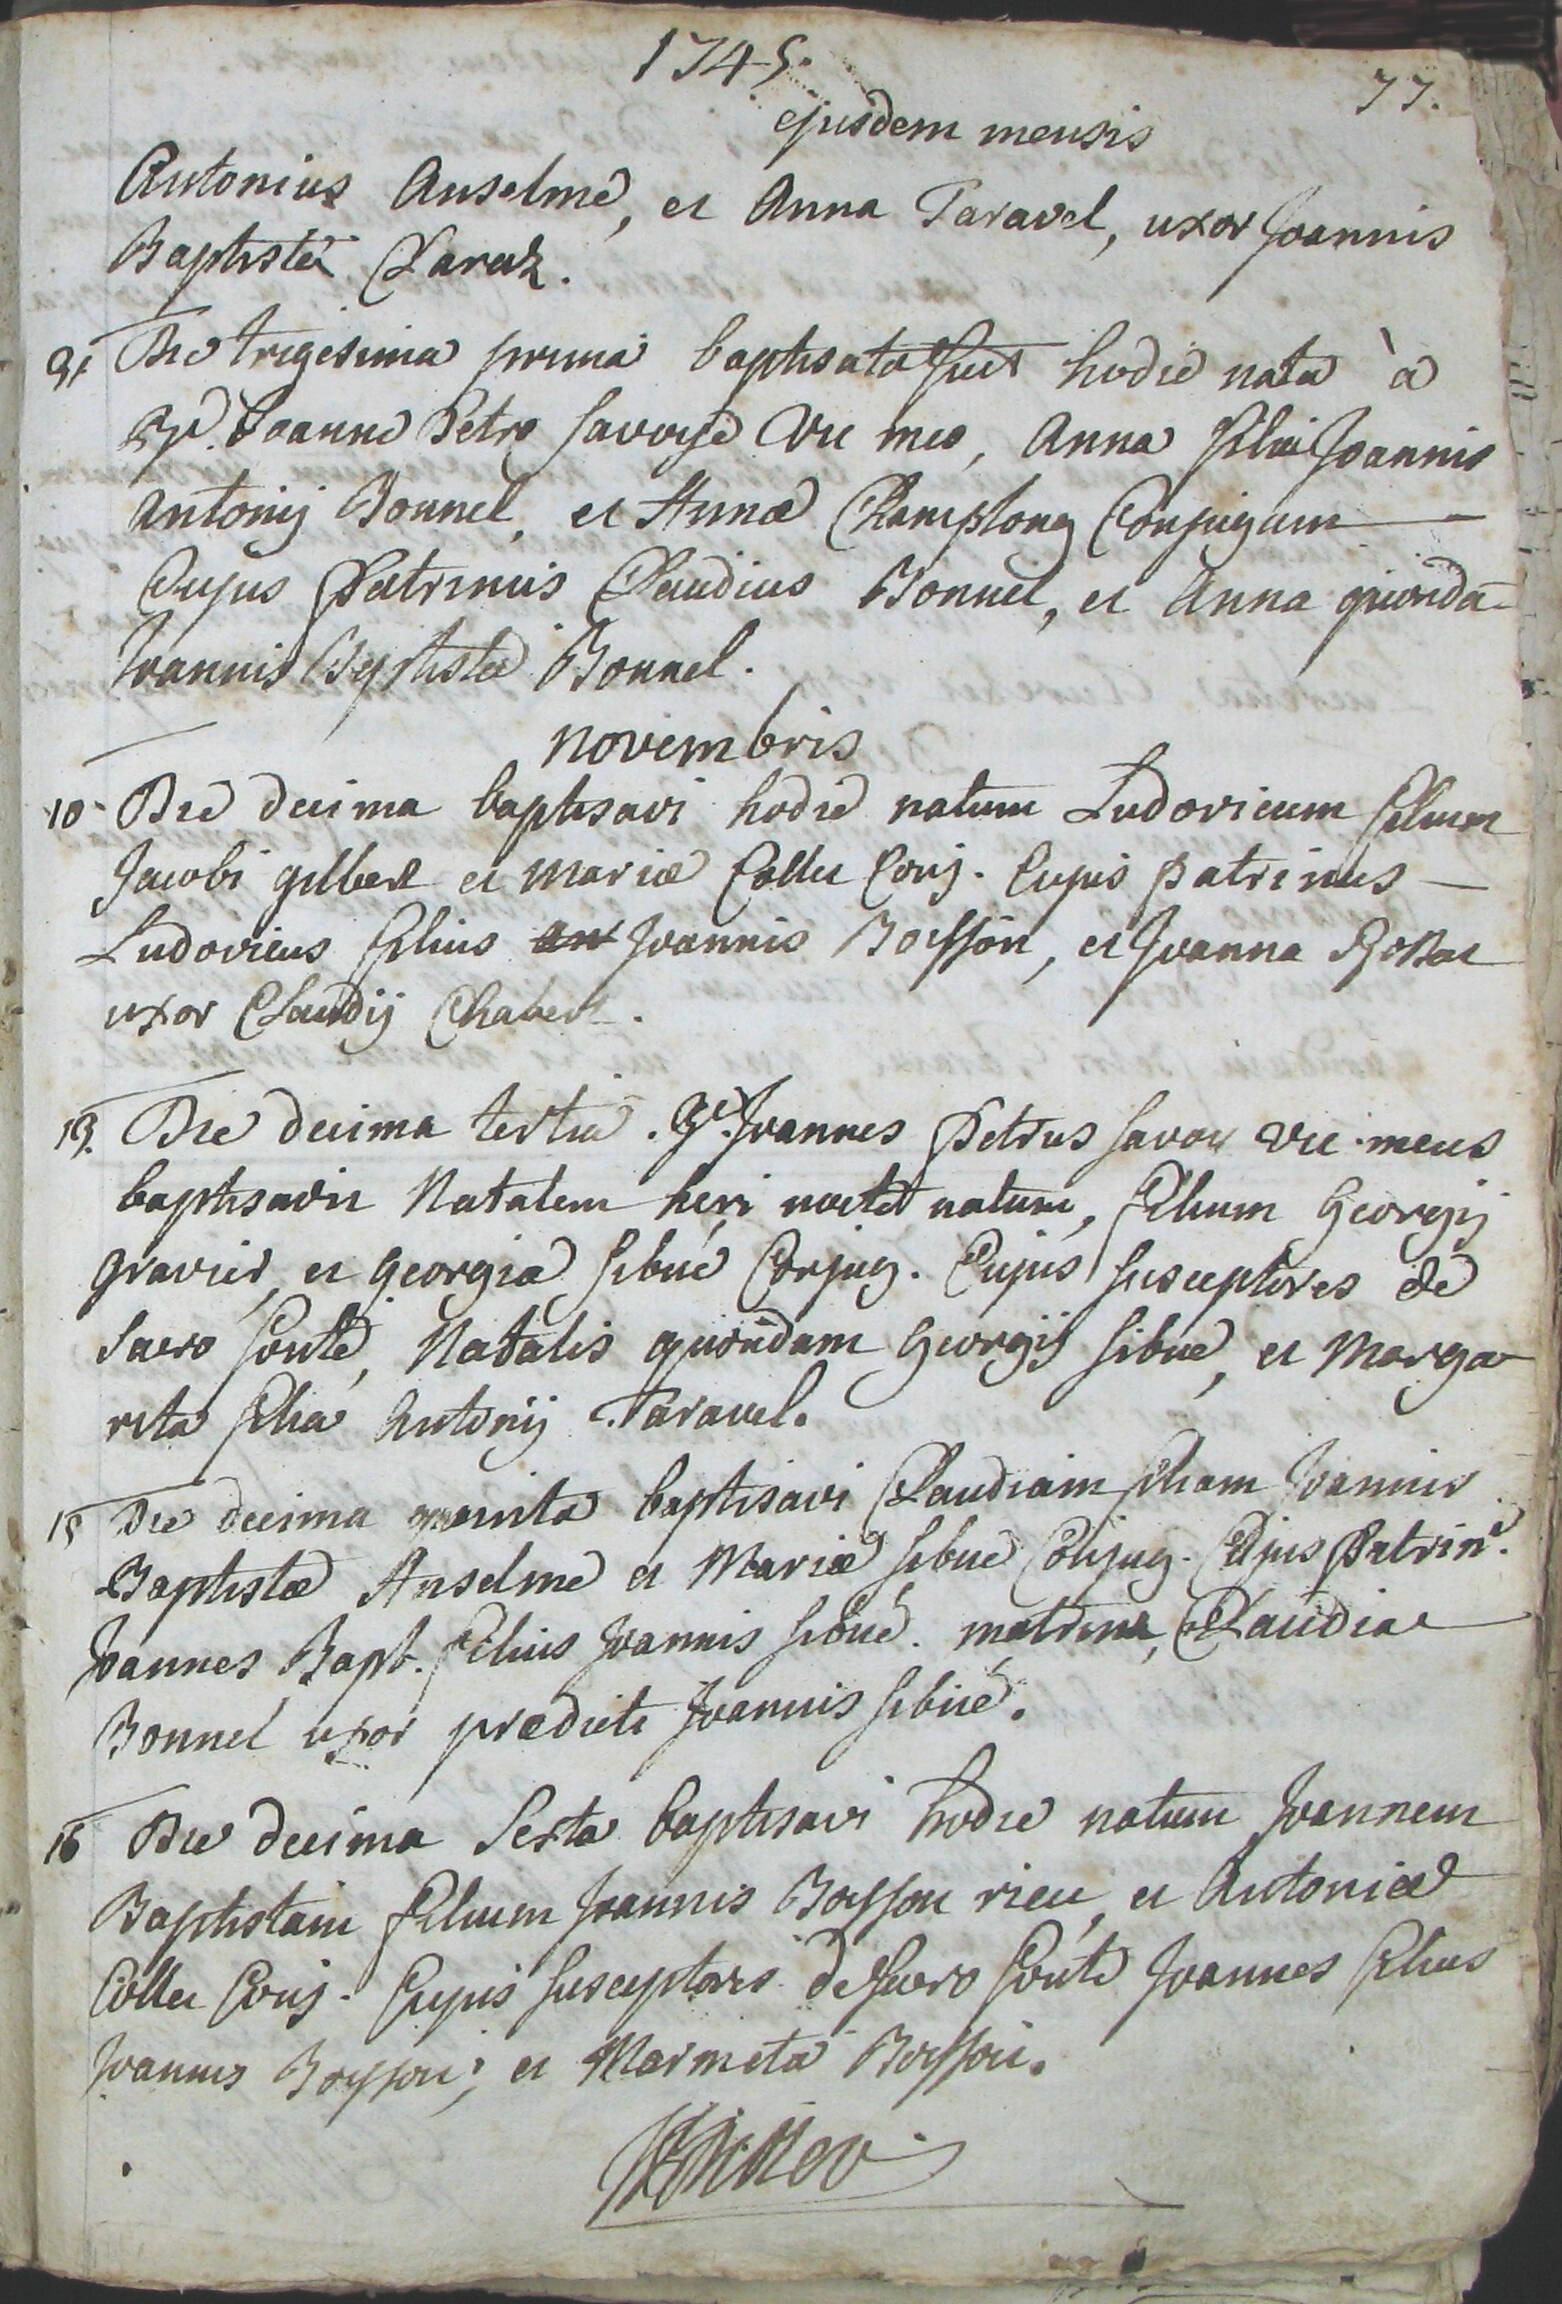 1745.
77.
ejusdem mensis
Antonius Anselme, et Anna Taravel, uxor Joannis
Baptistæ Claraz.
31 Die trigesima prima baptisata fuit hodie nata à
Rd. Joanne Petro Savoye Vic meo, Anna filia Joannis
Antonij Bonnel, et Annæ Champlong Conjugum
Cujus Patrinus Claudius Bonnel, et Anna quonda
Joannis Baptistæ Bonnel.
novembris
10 Die decima baptisavi hodie natum Ludovicum filium
Jacobi gilbert et Mariæ Collet Conj. Cujus patrinus
Ludovicus filius Joannis Boisson, et Joanna
uxor Claudij Chabert.
13. Die decima tertia. Rd. Joannes Petrus Savoy Vic. meus
baptisavit Natalem heri nocte natum, filium Georgij
gravier, et georgiæ Sibué Conjug. Cujus susceptores de
Sacro fonte, Natalis quondam Georgij Sibué, et Marga
rita filia Antonij Taravel.
15 Die decima quinta baptisavi Claudiam filiam Joannis
Baptistæ Anselme et Mariæ Sibué Conjug. Cujus Patrin.
Joannes Bapt. filius Joannis Sibué. matrina, Claudia
Bonnel uxor prædicti Joannis Sibué.
16 Die decima Sexta baptisavi hodie natum Joannem
Baptistam filium Joannis Boisson rieu, et Antoniæ
Collet Conj. Cujus susceptores de sacro fonte Joannes filius
Joannis Boisson, et Marmeta Boisson.